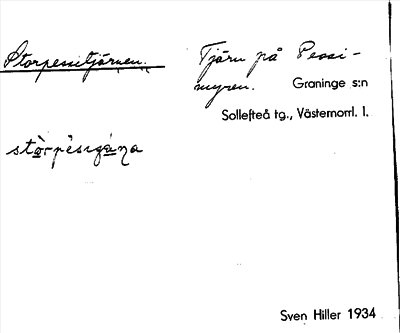 Storpessitjärnen.
Tjärn på Pessi-
myren.
Graninge s:n
Sollefteå tg., Västernorrl. l.
Sven Hiller 1934